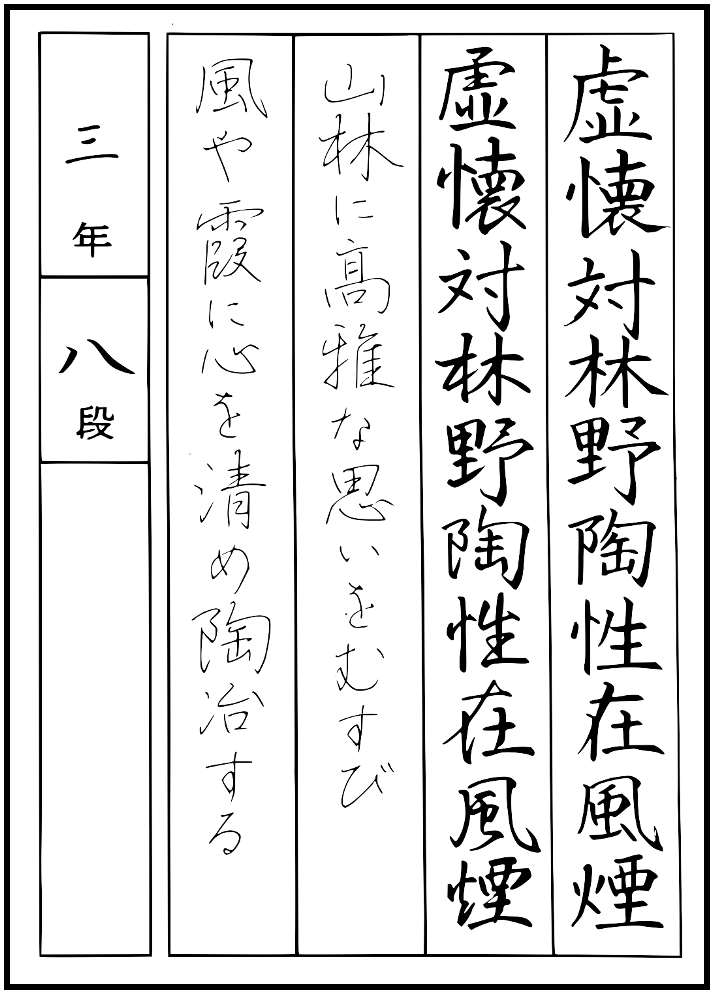 虚懐対林野陶性在風煙
虚懐対林野陶性在風煙
山林に高雅な思いをむすび
風や霞に心を清め陶冶する
三年
八段